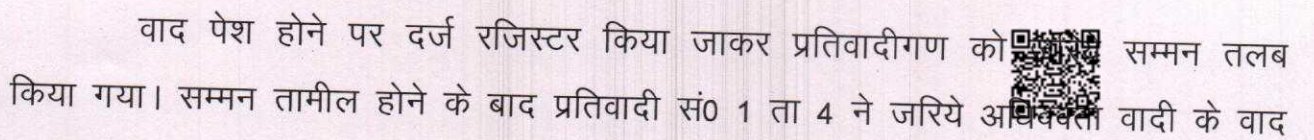 वाद पेश होने पर दर्ज रजिस्टर किया जाकर प्रतिवादीगण को सम्मन तलब
किया गया। सम्मन तामील होने के बाद प्रतिवादी सं0 1 ता 4 ने जरिये वादी के वाद